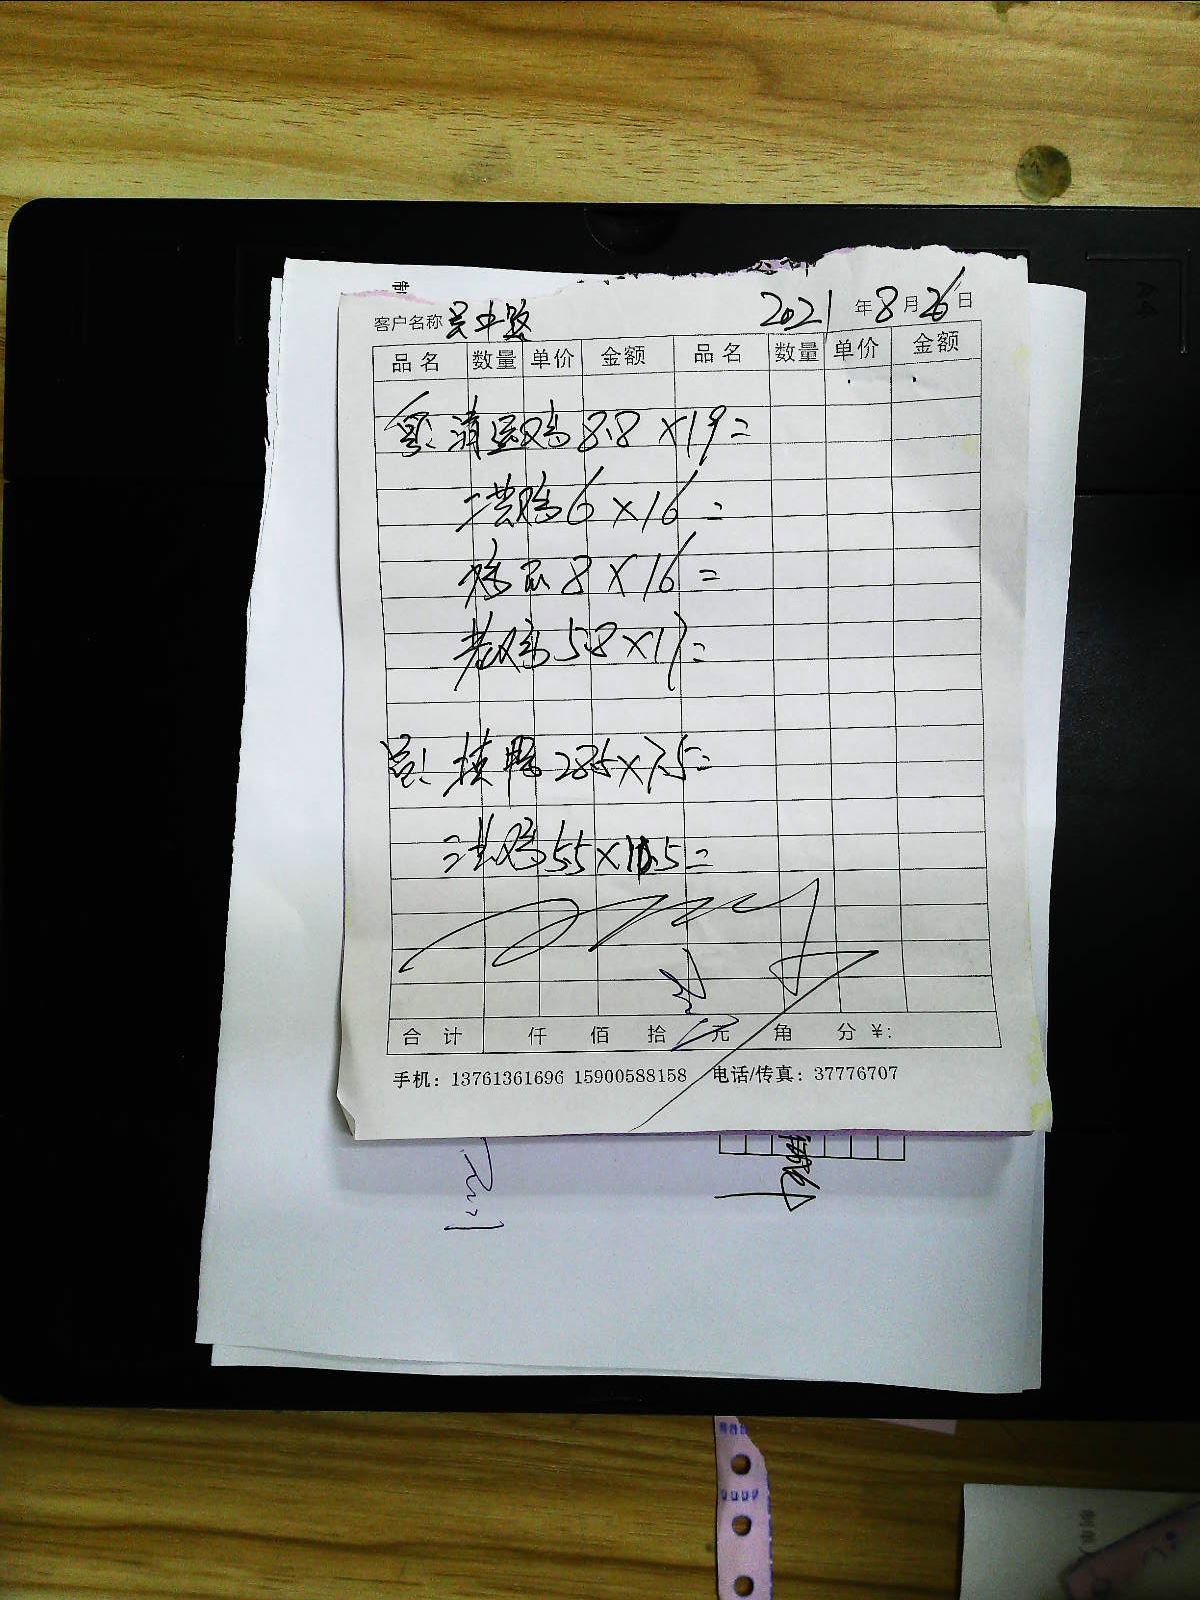 客户名称 吴中路 2021 年 8 月 26 日
品名 数量 单价 金额 品名 数量 单价 金额
粤: 清远鸡 8.8 ×19=
二黄鸡 6 ×16=
8 ×16=
老鸡 5.8 ×17=
28.5×7.5=
二黄鸡 5.5×10.5=
合 计 仟 佰 拾 元 角 分 ¥:
手机: 13761361696 15900588158 电话/传真: 37776707
A4